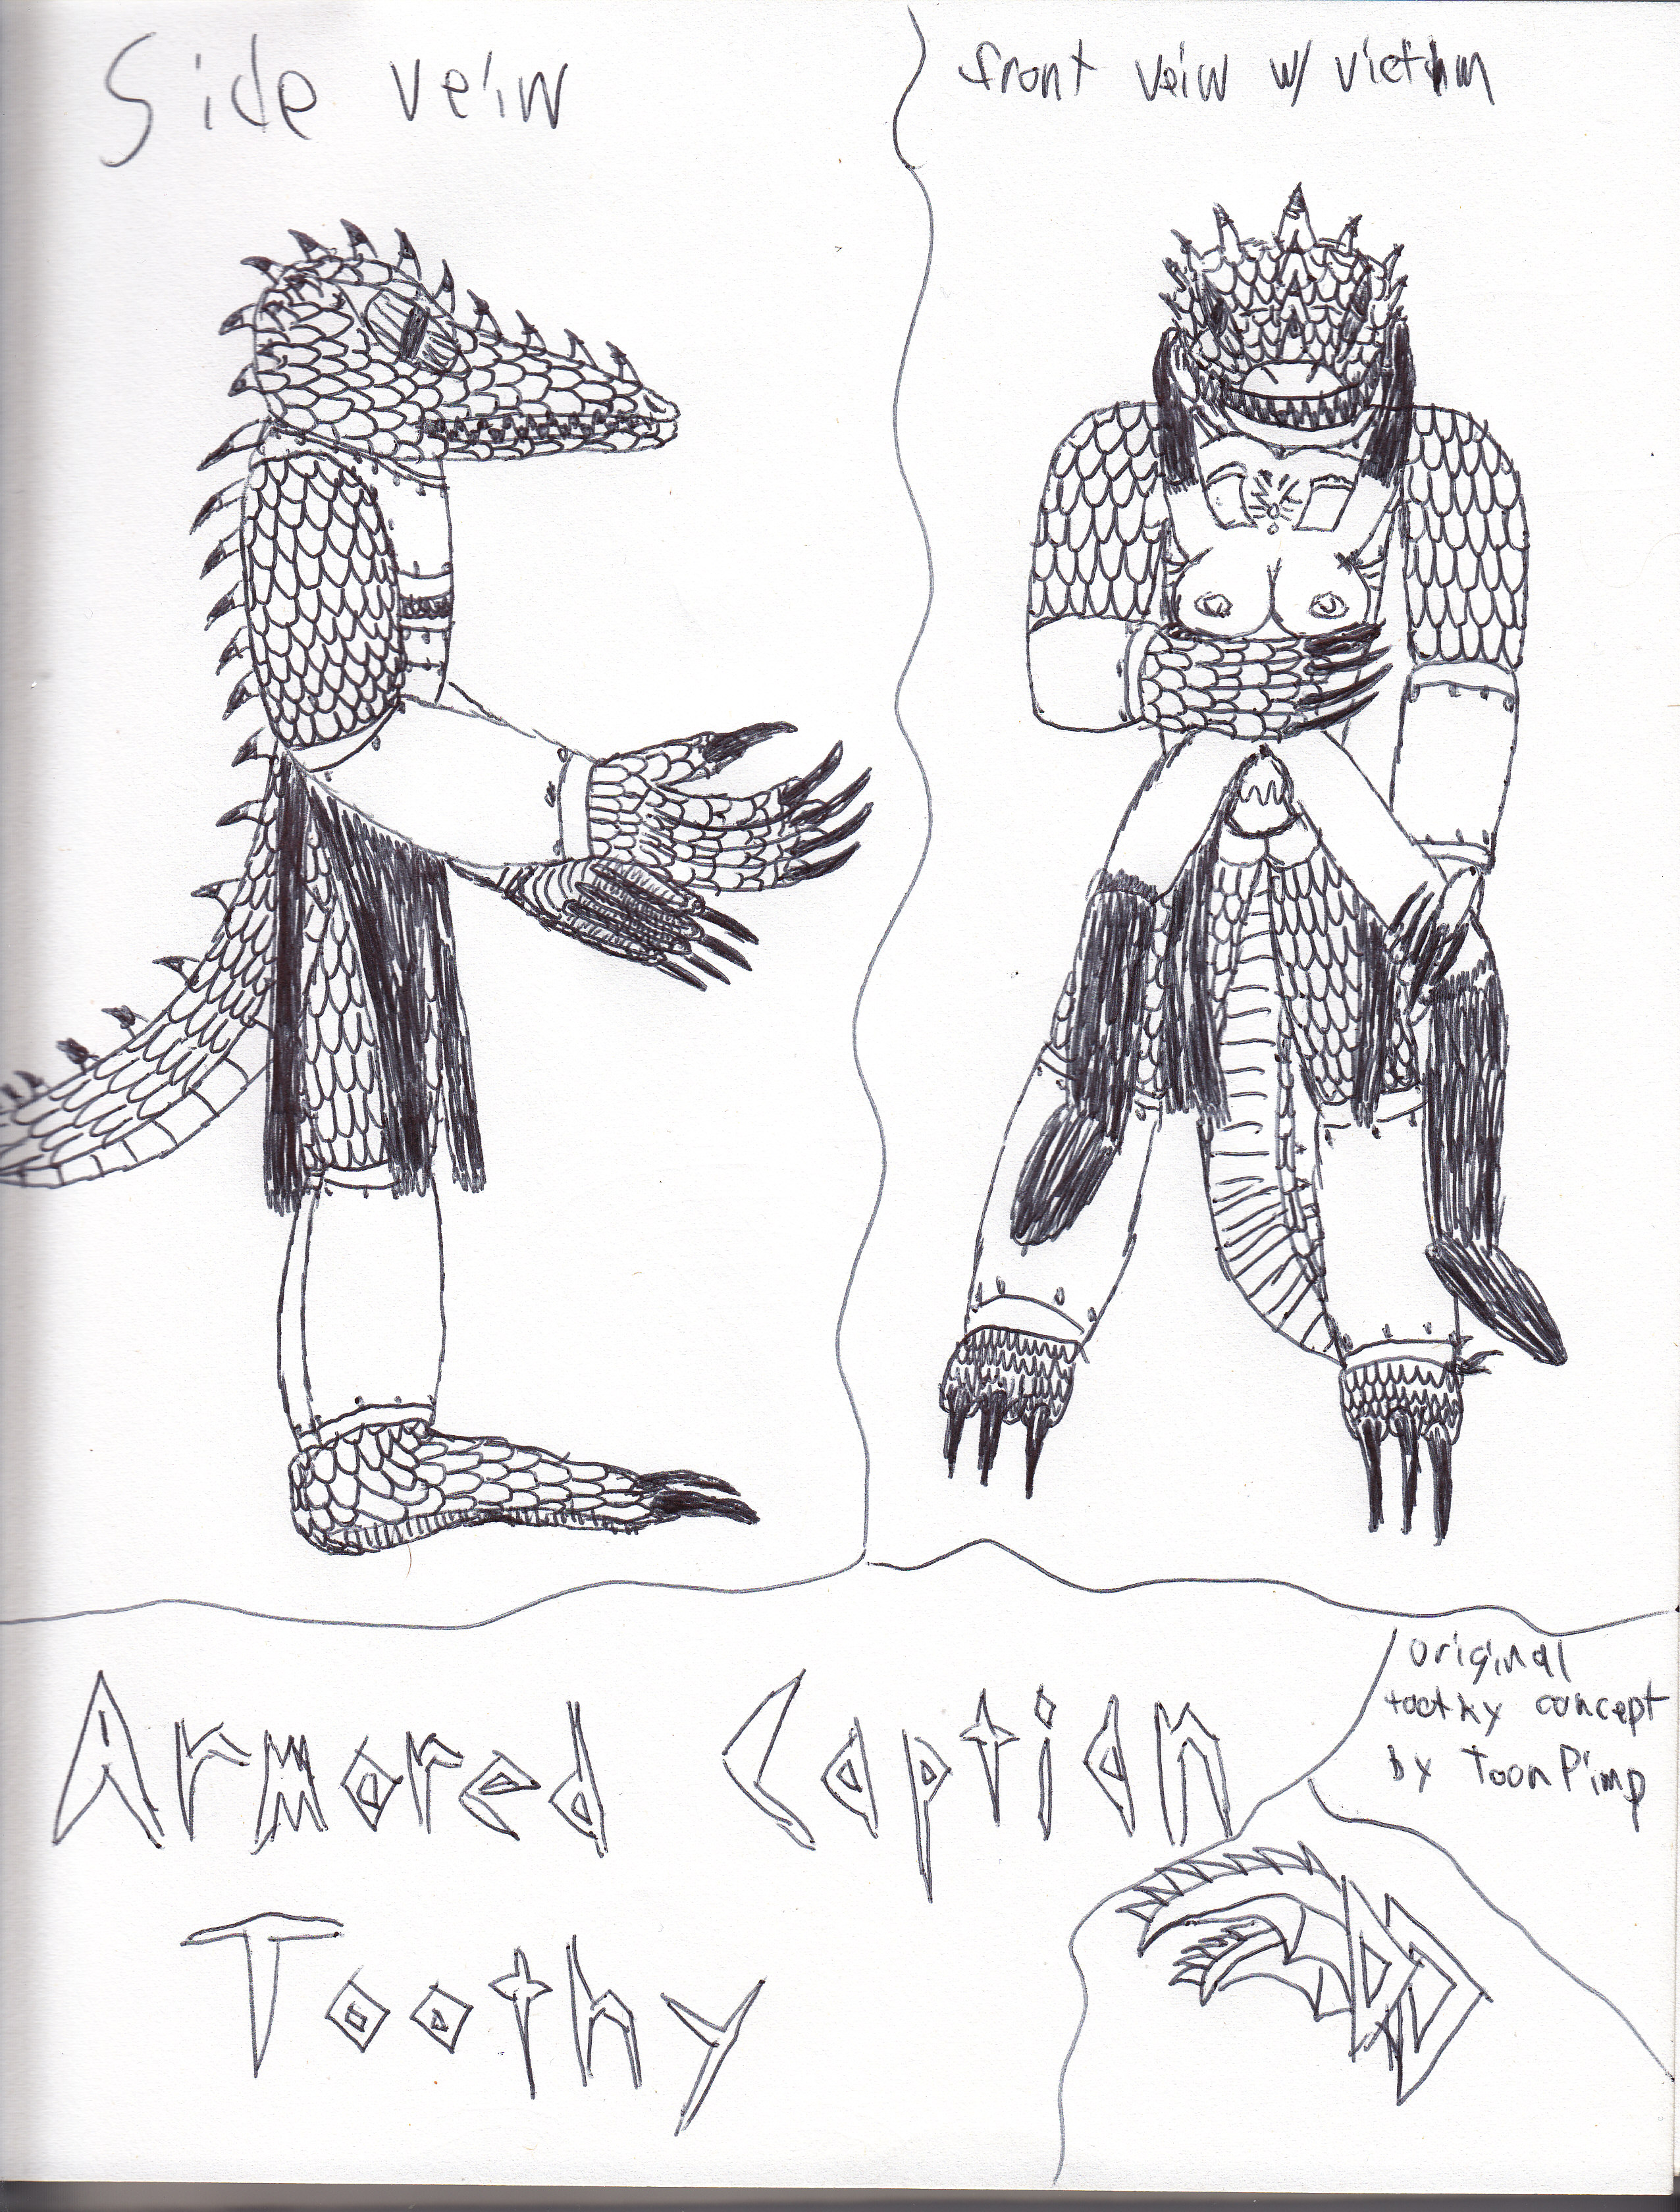 Side veiw
front veiw w/ victim
Armored Captian
Toothy
original
toothy concept
by ToonPimp